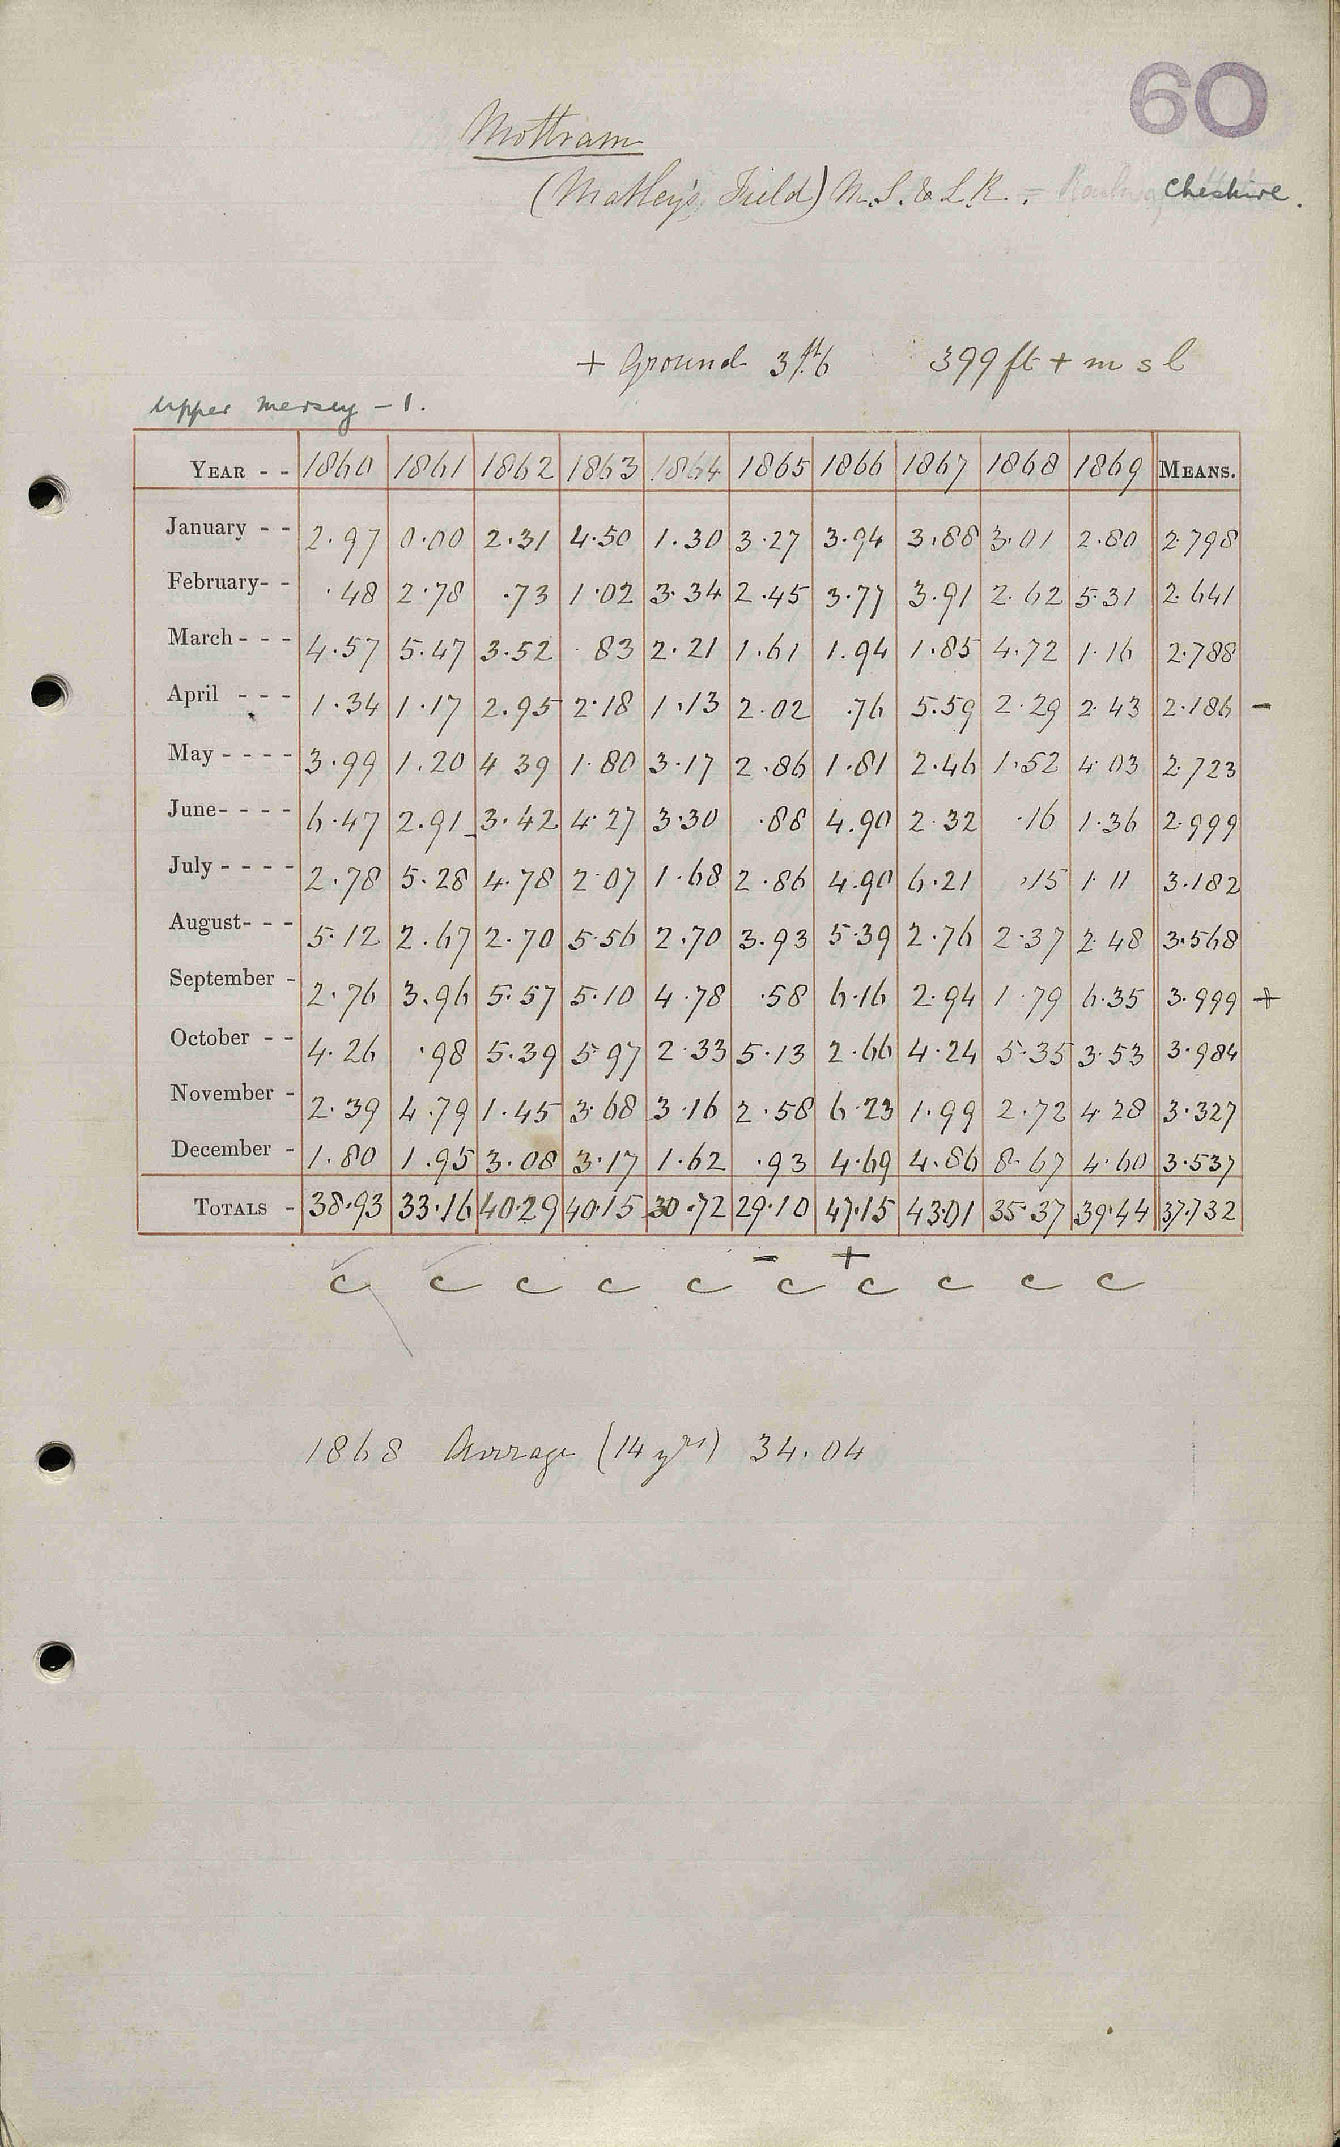 60
Mottram
(Matley's Field) M. S. & L. R. = Cheshire.
+ Ground 3 ft 6 399 ft + m s l
Upper Mersey - 1.
YEAR - - 1860 1861 1862 1863 1864 1865 1866 1867 1868 1869 MEANS.
January - - 2.97 0.00 2.31 4.50 1.30 3.27 3.94 3.88 3.01 2.80 2.798
February- - .48 2.78 .73 1.02 3.34 2.45 3.77 3.91 2.62 5.31 2.641
March - - - 4.57 5.47 3.52 .83 2.21 1.61 1.94 1.85 4.72 1.16 2.788
April - - - 1.34 1.17 2.95 2.18 1.13 2.02 .76 5.59 2.29 2.43 2.186 -
May - - - - 3.99 1.20 4 39 1.80 3.17 2.86 1.81 2.46 1.52 4.03 2.723
June- - - - 6.47 2.91 3.42 4.27 3.30 .88 4.90 2.32 .16 1.36 2.999
July - - - - 2.78 5.28 4.78 2.07 1.68 2.86 4.90 6.21 .15 1.11 3.182
August- - - 5.12 2.67 2.70 5.56 2.70 3.93 5.39 2.76 2.37 2.48 3.568
September - 2.76 3.96 5.57 5.10 4.78 .58 6.16 2.94 1.79 6.35 3.999 +
October - - 4.26 .98 5.39 5.97 2.33 5.13 2.66 4.24 5.35 3.53 3.984
November - 2.39 4.79 1.45 3.68 3.16 2.58 6.23 1.99 2.72 4.28 3.327
December - 1.80 1.95 3.08 3.17 1.62 .93 4.69 4.86 8.67 4.60 3.537
TOTALS - 38.93 33.16 40.29 40.15 30.72 29.10 47.15 43.01 35.37 39.44 37.732
- +
c c c c c c c c c c
1868 Average (14 yrs) 34.04